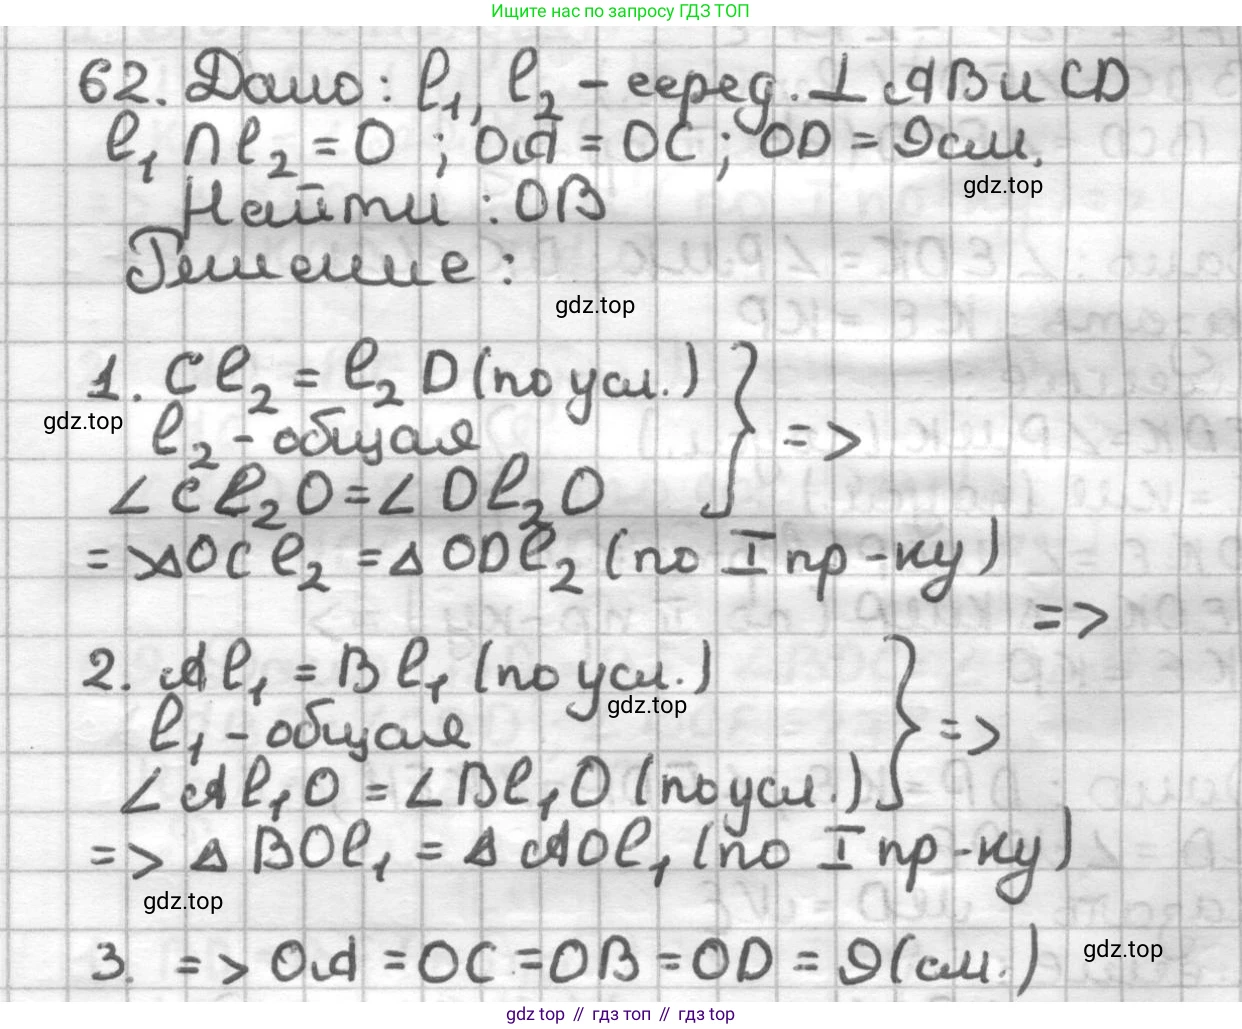 Ищите нас по запросу ГДЗ ТОП
62. Дано: l₁, l₂ - серед. ⊥ AB и CD
l₁ ∩ l₂ = O ; OA = OC ; OD = 9см.
gdz.top
Найти : OB
Решение :
gdz.top
1. Cl₂ = l₂D (по усл.)
gdz.top
l₂ - общая
=>
∠Cl₂O = ∠Dl₂O
=> △OCl₂ = △ODl₂ (по I пр-ку)
=>
2. Al₁ = Bl₁ (по усл.)
gdz.top
l₁ - общая
=>
∠Al₁O = ∠Bl₁O (по усл.)
=> △BOl₁ = △AOl₁ (по I пр-ку)
gdz.top
3. => OA = OC = OB = OD = 9(см.)
gdz.top
gdz top // гдз топ // гдз top